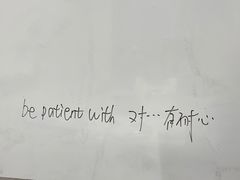 be patient with 对…有耐心